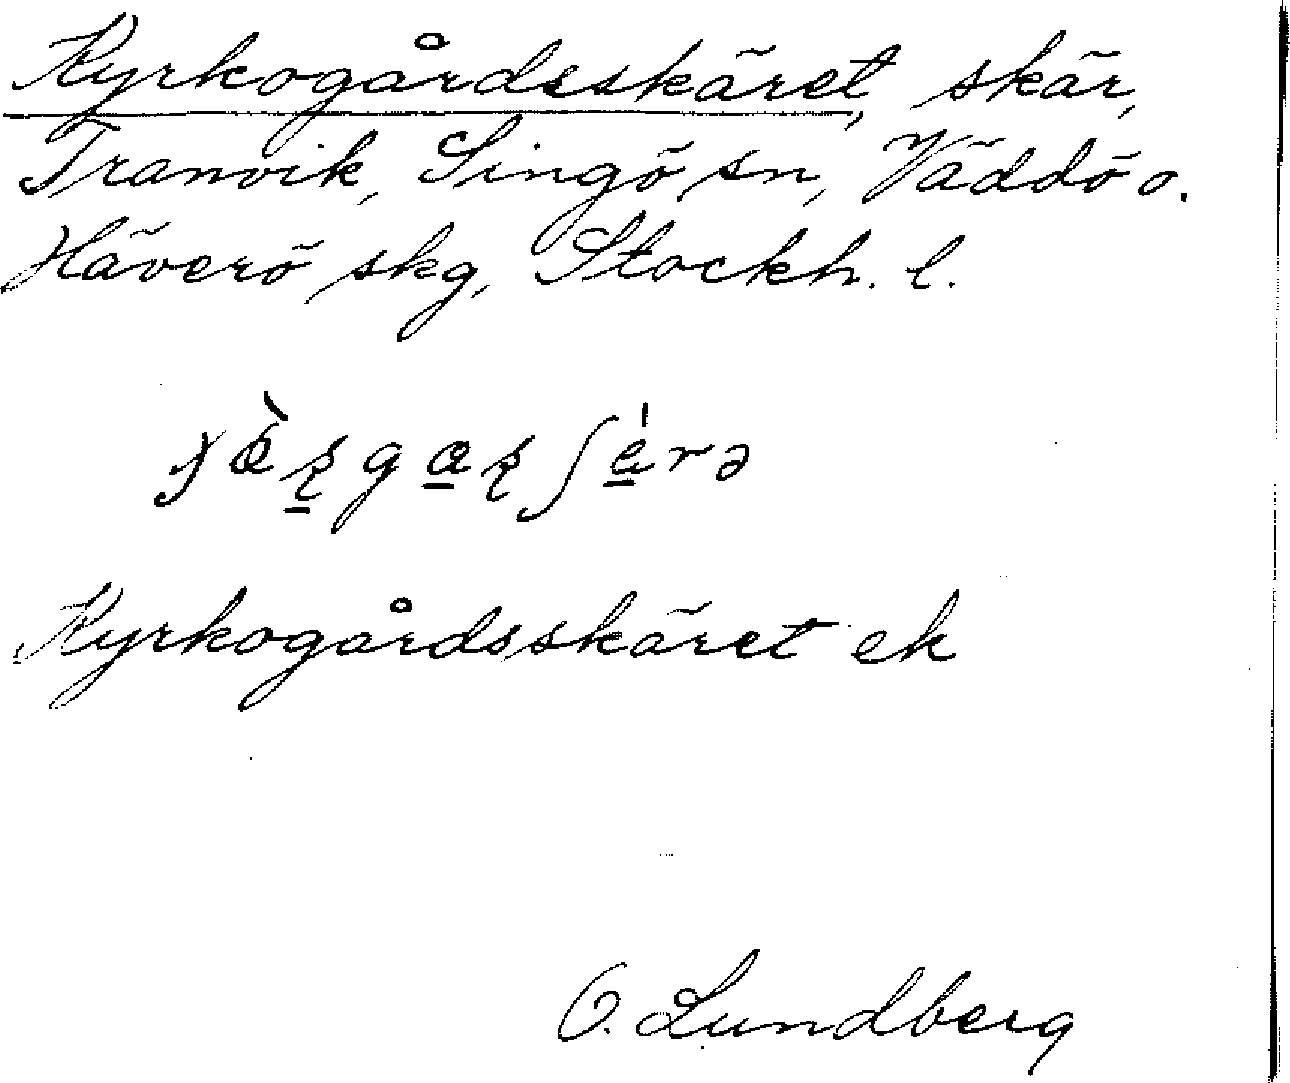 Kyrkogårdsskäret, skär,
Tranvik, Singö sn, Väddö o.
Häverö skg, Stockh. l.
Kyrkogårdsskäret ek
O. Lundberg